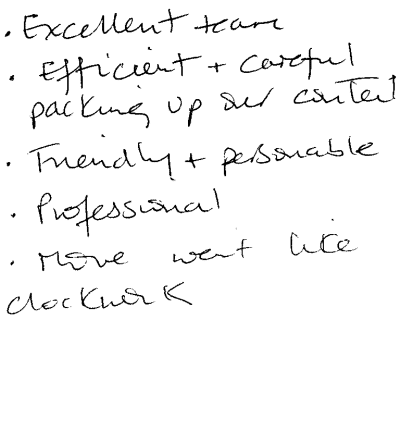 · Excellent team
· Efficient + careful
packing up our content
· Friendly + personable
· Professional
· Move went like
clockwork